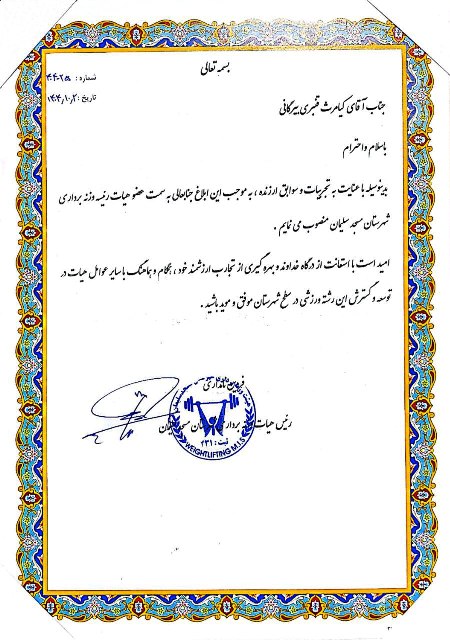 بسمه تعالی
شماره :
تاریخ : ۱۴۰۴٫۱۰٫۲
جناب آقای کیامرث قنبری بیرگانی
باسلام واحترام
بدینوسیله با عنایت به تجربیات و سوابق ارزنده ، به موجب این ابلاغ جنابعالی به سمت عضو هیات رئیسه وزنه برداری
شهرستان مسجد سلیمان منصوب می نمایم .
امید است با استعانت از درگاه خداوند و بهره گیری از تجارب ارزشمند خود ، همگام و هماهنگ با سایر عوامل هیات در
توسعه و گسترش این رشته ورزشی در سطح شهرستان موفق و موید باشید .
نامداری
رئیس هیات
ثبت : ۴۳۱
WEIGHTLIFTING M.I.S